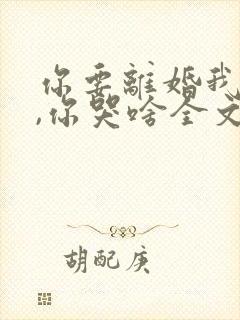 你要離婚我
,你哭啥全文
胡配庚